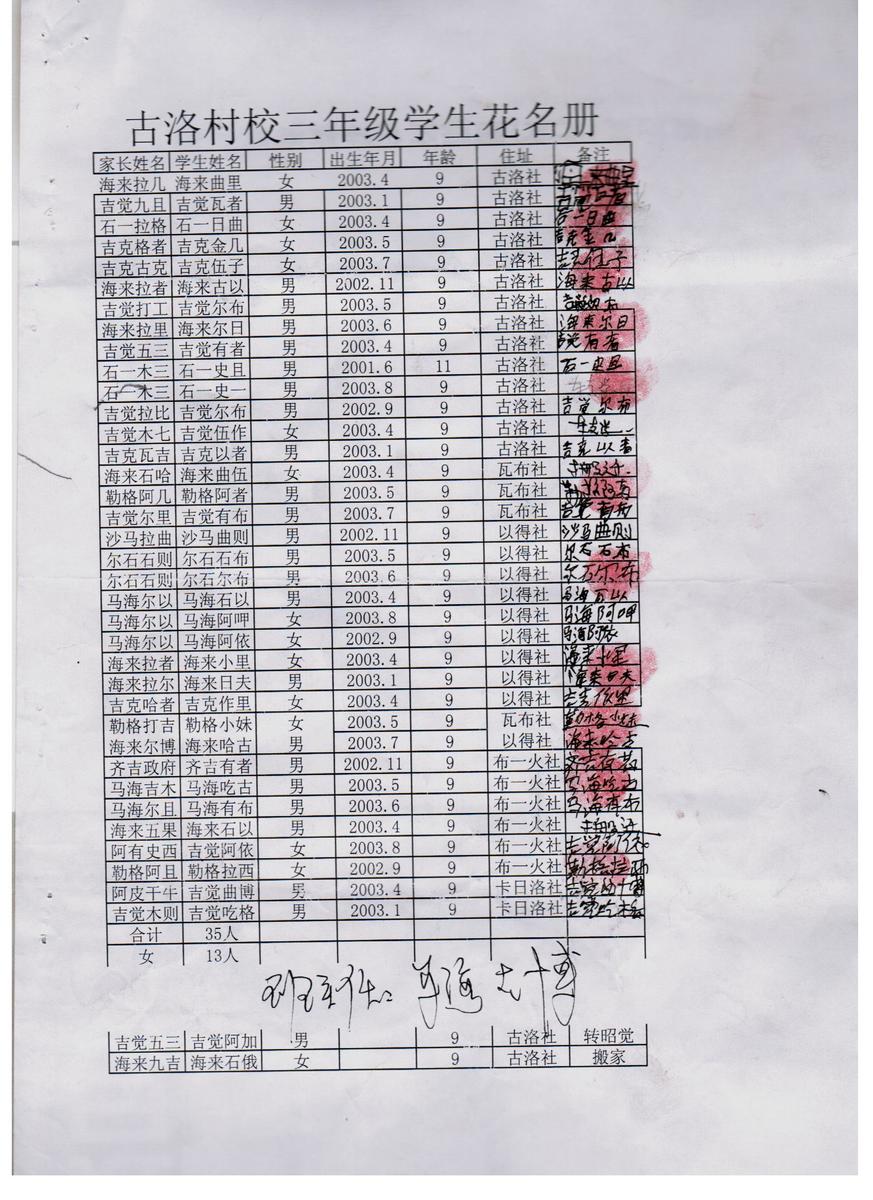 古洛村校三年级学生花名册
家长姓名 学生姓名 性别 出生年月 年龄 住址 备注
海来拉几 海来曲里 女 2003.4 9 古洛社
吉觉九且 吉觉瓦者 男 2003.1 9 古洛社
石一拉格 石一日曲 女 2003.4 9 古洛社 石一日曲
吉克格者 吉克金几 女 2003.5 9 古洛社 吉克金几
吉克古克 吉克伍子 女 2003.7 9 古洛社 吉克伍子
海来拉者 海来古以 男 2002.11 9 古洛社 海来古以
吉觉打工 吉觉尔布 男 2003.5 9 古洛社
海来拉里 海来尔日 男 2003.6 9 古洛社 海来尔日
吉觉五三 吉觉有者 男 2003.4 9 古洛社 吉觉有者
石一木三 石一史且 男 2001.6 11 古洛社 石一史且
石一木三 石一史一 男 2003.8 9 古洛社
吉觉拉比 吉觉尔布 男 2002.9 9 古洛社 吉觉尔布
吉觉木七 吉觉伍作 女 2003.4 9 古洛社
吉克瓦吉 吉克以者 男 2003.1 9 古洛社 吉克以者
海来石哈 海来曲伍 女 2003.4 9 瓦布社
勒格阿几 勒格阿者 男 2003.5 9 瓦布社
吉觉尔里 吉觉有布 男 2003.7 9 瓦布社 吉觉有布
沙马拉曲 沙马曲则 男 2002.11 9 以得社 沙马曲则
尔石石则 尔石石布 男 2003.5 9 以得社 尔石石布
尔石石则 尔石尔布 男 2003.6 9 以得社 尔石尔布
马海尔以 马海石以 男 2003.4 9 以得社
马海尔以 马海阿呷 女 2003.8 9 以得社 马海阿呷
马海尔以 马海阿依 女 2002.9 9 以得社 马海阿依
海来拉者 海来小里 女 2003.4 9 以得社 海来小里
海来拉尔 海来日夫 男 2003.1 9 以得社 海来日夫
吉克哈者 吉克作里 女 2003.4 9 以得社
勒格打吉 勒格小妹 女 2003.5 9 瓦布社 勒格小妹
海来尔博 海来哈古 男 2003.7 9 以得社
齐吉政府 齐吉有者 男 2002.11 9 布一火社
马海吉木 马海吃古 男 2003.5 9 布一火社 马海吃古
马海尔且 马海有布 男 2003.6 9 布一火社 马海有布
海来五果 海来石以 男 2003.4 9 布一火社
阿有史西 吉觉阿依 女 2003.8 9 布一火社 吉觉阿依
勒格阿且 勒格拉西 女 2002.9 9 布一火社 勒格拉西
阿皮干牛 吉觉曲博 男 2003.4 9 卡日洛社
吉觉木则 吉觉吃格 男 2003.1 9 卡日洛社 吉觉吃格
合计 35人
女 13人
班主任:
吉觉五三 吉觉阿加 男 9 古洛社 转昭觉
海来九吉 海来石俄 女 9 古洛社 搬家